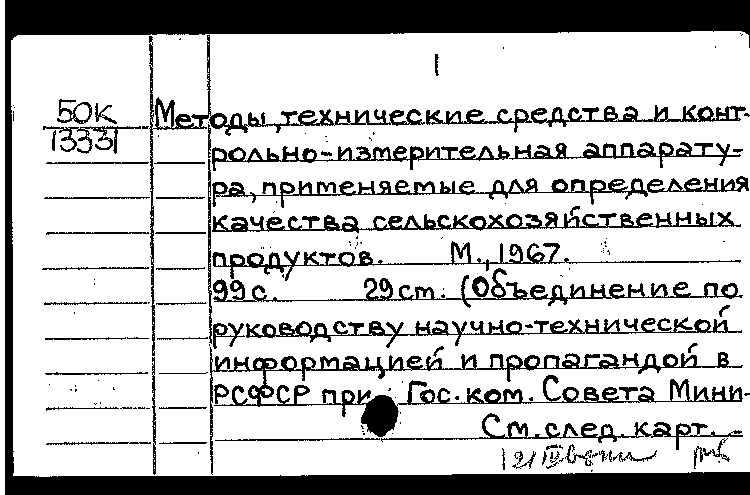 1
50К Методы, технические средства и конт-
13331 рольно-измерительная аппарату-
ра, применяемые для определения
качества сельскохозяйственных
продуктов. М., 1967.
99 с. 29 ст. (Объединение по
руководству научно-технической
информацией и пропагандой в
РСФСР при Гос. ком. Совета Мини-
См. след. карт. -